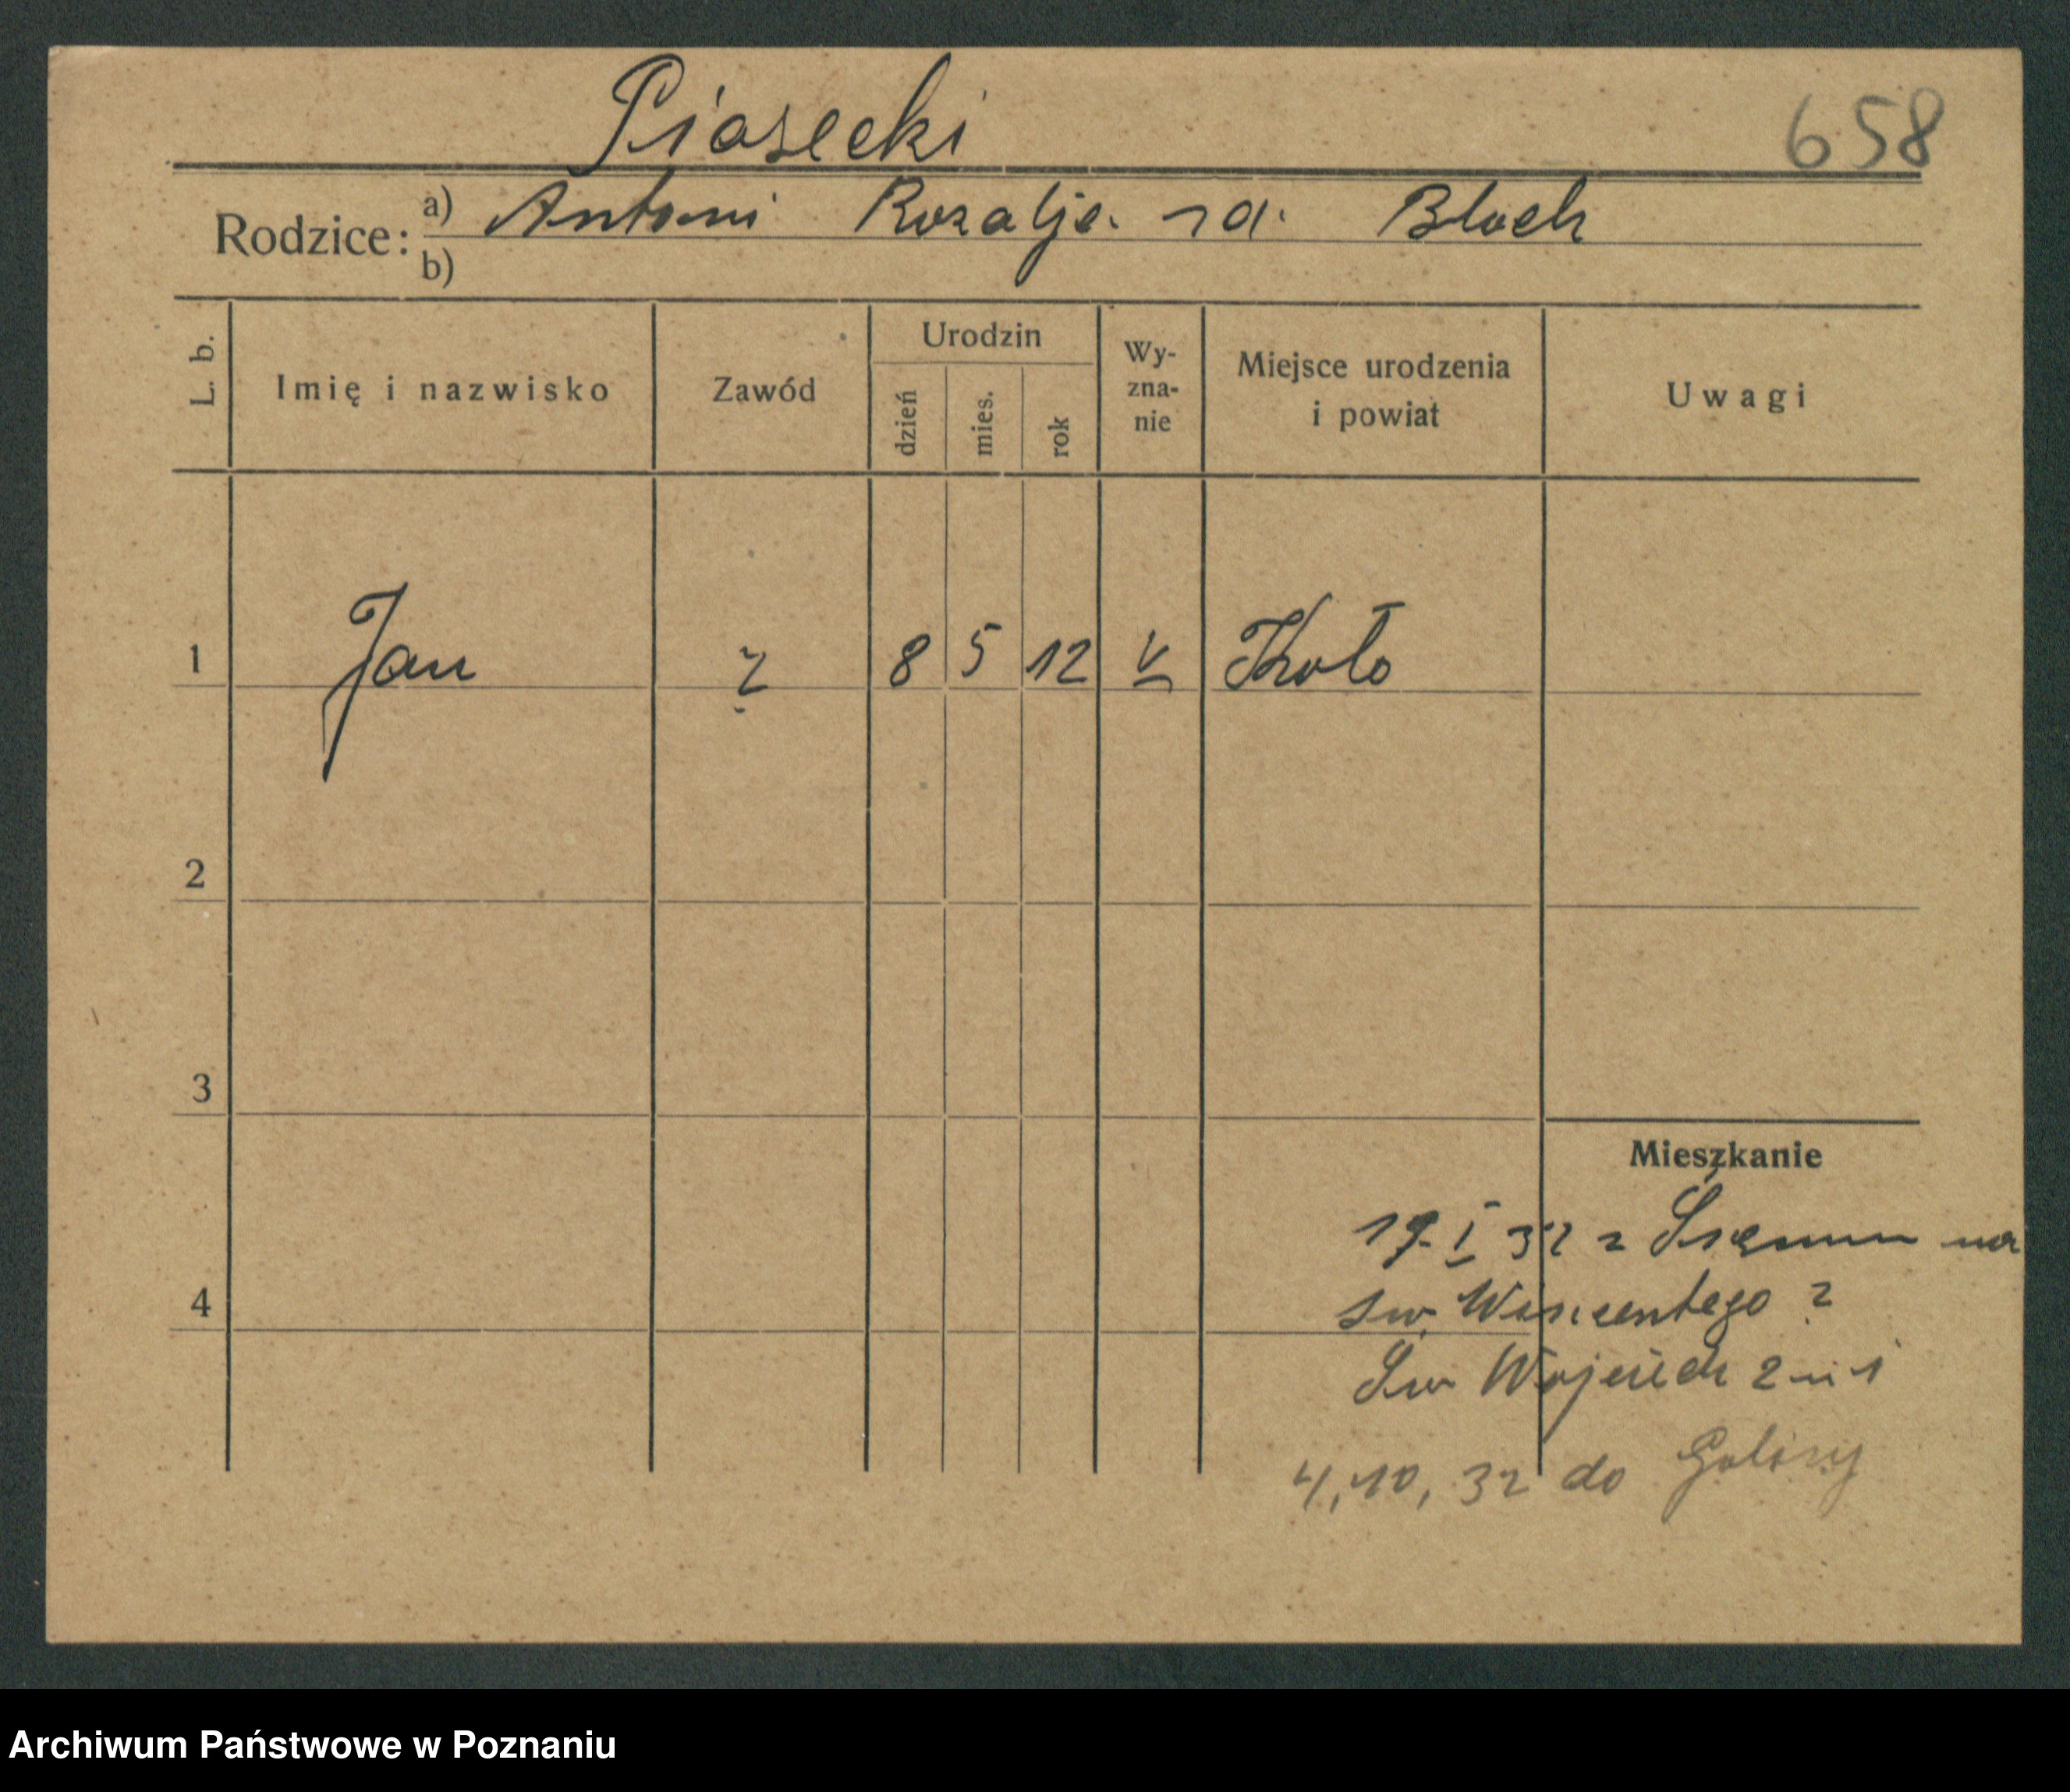 Piasecki
658
Rodzice: a) Antoni Rozalja. zd. Bloch
b)
L. b.
Imię i nazwisko
Zawód
Urodzin
dzień
mies.
rok
Wy-
zna-
nie
Miejsce urodzenia
i powiat
Uwagi
1 Jan 8 5 12 Koło
2
3
Mieszkanie
19. I 32 z na
4
św. Wincentego 2
Św Wojciech 2 m 1
4, 10, 32 do
Archiwum Państwowe w Poznaniu